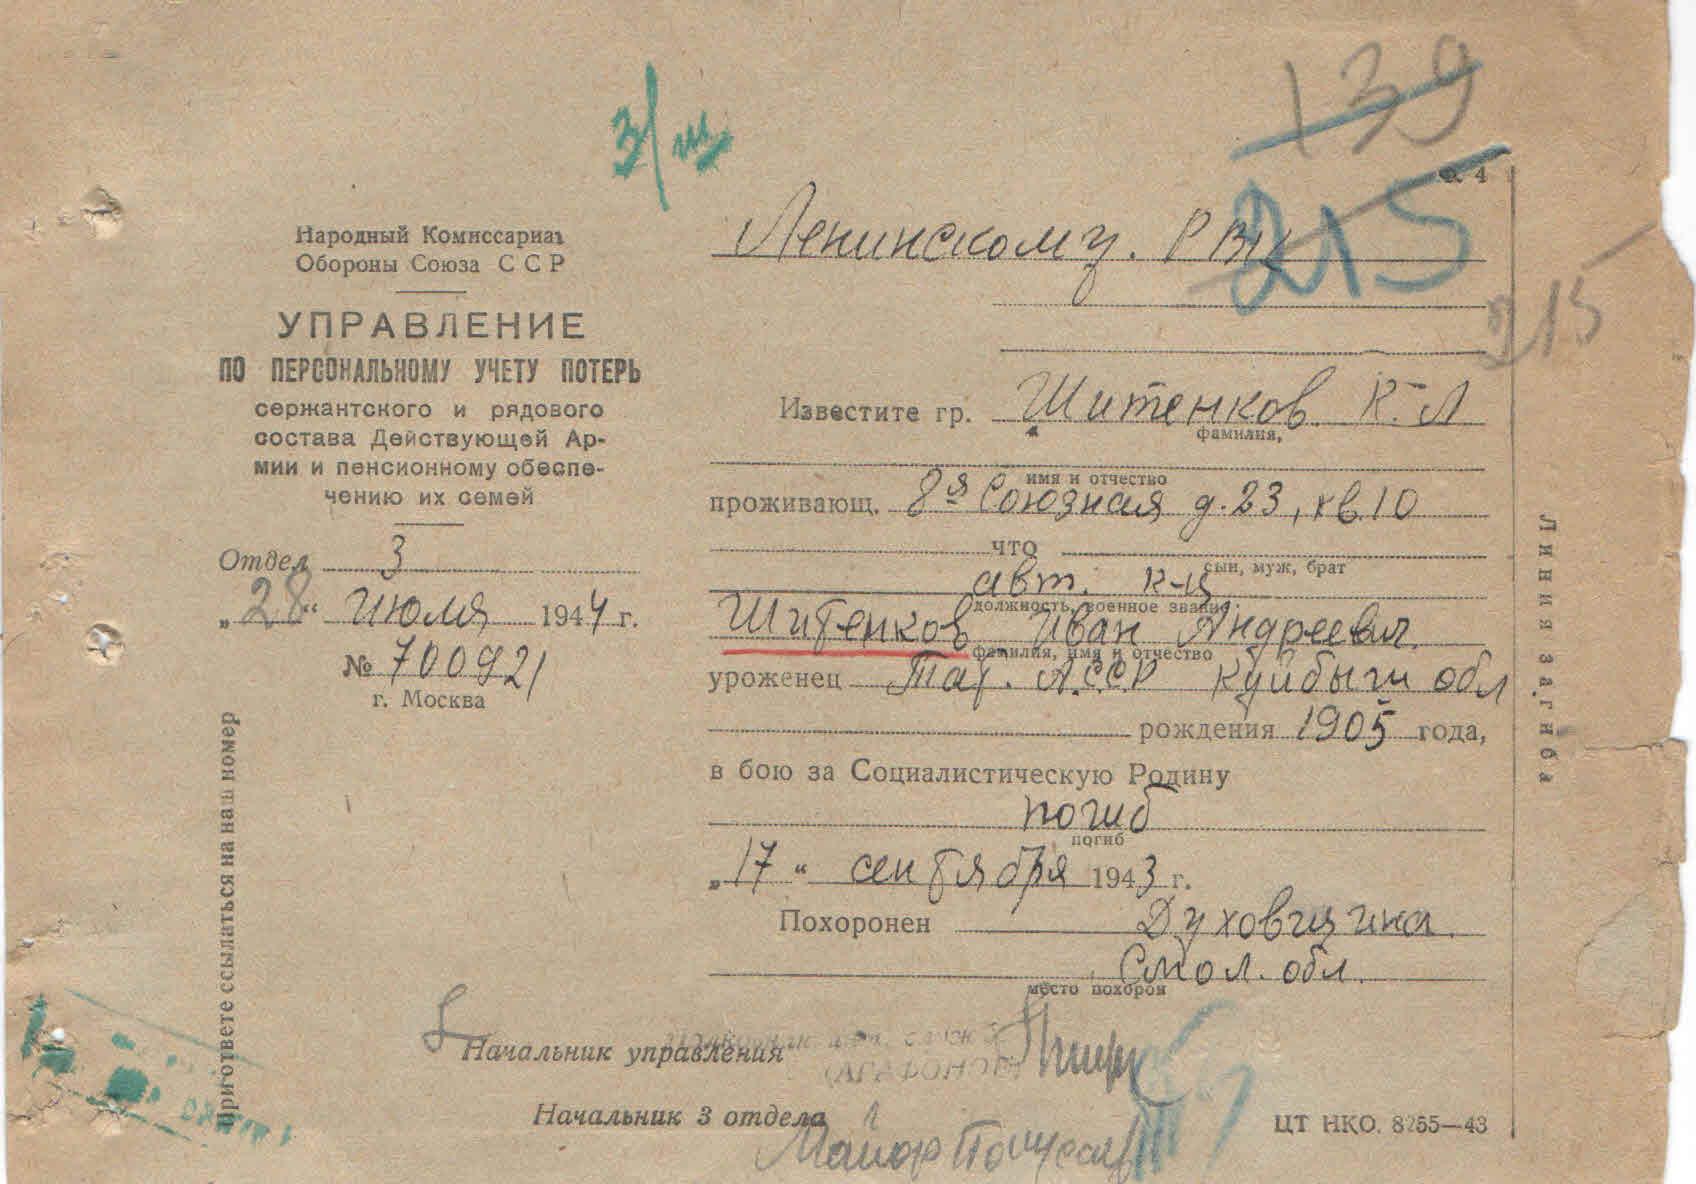 139
3/ш
Ф. 4
215
215
Народный Комиссариат
Обороны Союза ССР
УПРАВЛЕНИЕ
ПО ПЕРСОНАЛЬНОМУ УЧЕТУ ПОТЕРЬ
сержантского и рядового
состава Действующей Ар-
мии и пенсионному обеспе-
чению их семей
Отдел 3
„28“ июля 1944 г.
№ 700921
г. Москва
При ответе ссылаться на наш номер
Ленинскому. РВК
Известите гр. Шитенков К. Л
фамилия,
имя и отчество
проживающ. 8я Союзная д. 23, кв. 10
что
сын, муж, брат
авт. к-ц
должность, военное звание
Шитенков Иван Андреевич.
фамилия, имя и отчество
уроженец Тат. А.ССР Куйбыш обл
рождения 1905 года,
в бою за Социалистическую Родину
погиб
погиб
„17“ сентября 1943 г.
Похоронен Духовщина.
Смол. обл.
место похорон
Начальник управления
(АГАФОНОВ)
Начальник 3 отдела
Майор
ЦТ НКО. 8255—43
Линия загиба